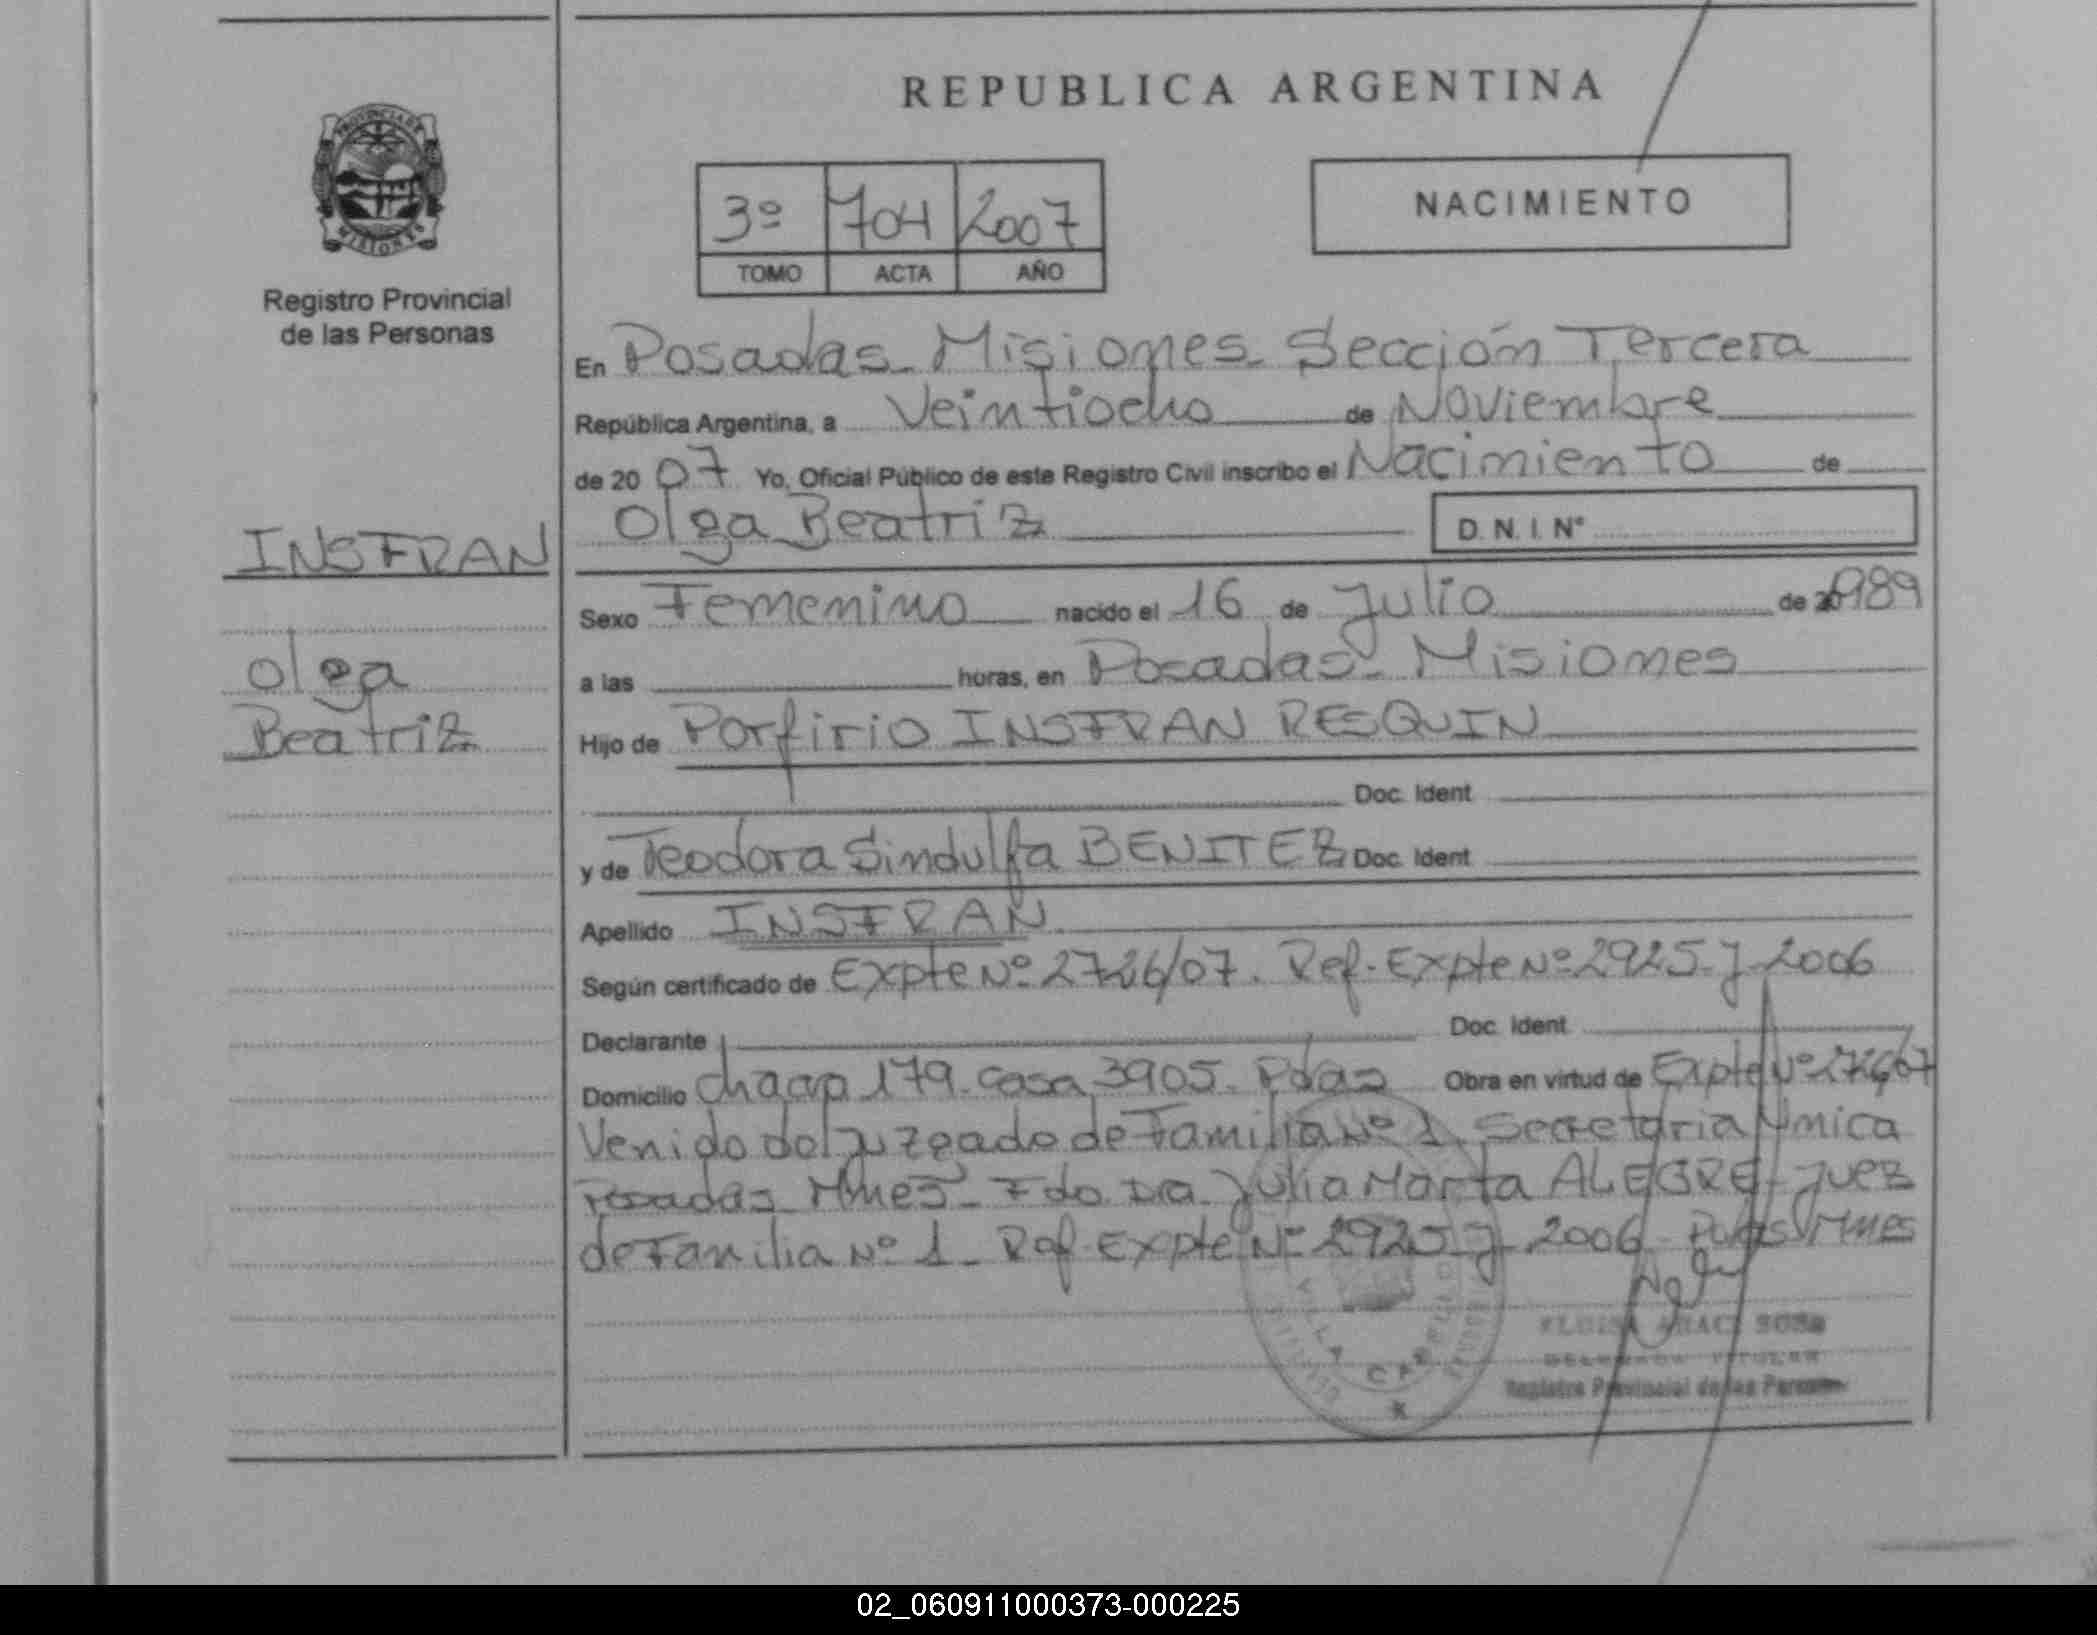 REPUBLICA ARGENTINA
PROVINCIA DE
MISIONES
Registro Provincial
de las Personas
3º 704 2007
TOMO ACTA AÑO
NACIMIENTO
En Posadas - Misiones - Sección Tercera
República Argentina, a Veintiocho de Noviembre
de 20 07 Yo, Oficial Público de este Registro Civil inscribo el Nacimiento de
Olga Beatriz D. N. I. Nº
INSFRAN
Olga
Beatriz
Sexo Femenino nacido el 16 de Julio de 1989
a las horas, en Posadas - Misiones
Hijo de Porfirio INSFRAN RESQUIN
Doc. Ident
y de Teodora Sindulfa BENITEZ Doc. Ident
Apellido INSFRAN
Según certificado de Expte Nº 2726/07. Ref. Expte Nº 2925-J-2006
Declarante Doc. Ident
Domicilio chacp 179. casa 3905. Pdas Obra en virtud de Expte Nº 2726/07
Venido del Juzgado de Familia Nº 1 Secretaria Unica
Posadas Mnes - Fdo Dra. Julia Marta ALEGRE - Juez
de Familia Nº 1 - Ref. Expte Nº 2925-J-2006 - Pdas Mnes
VILLA CABELLO
SOSA
Registro Provincial de las Personas
02_060911000373-000225